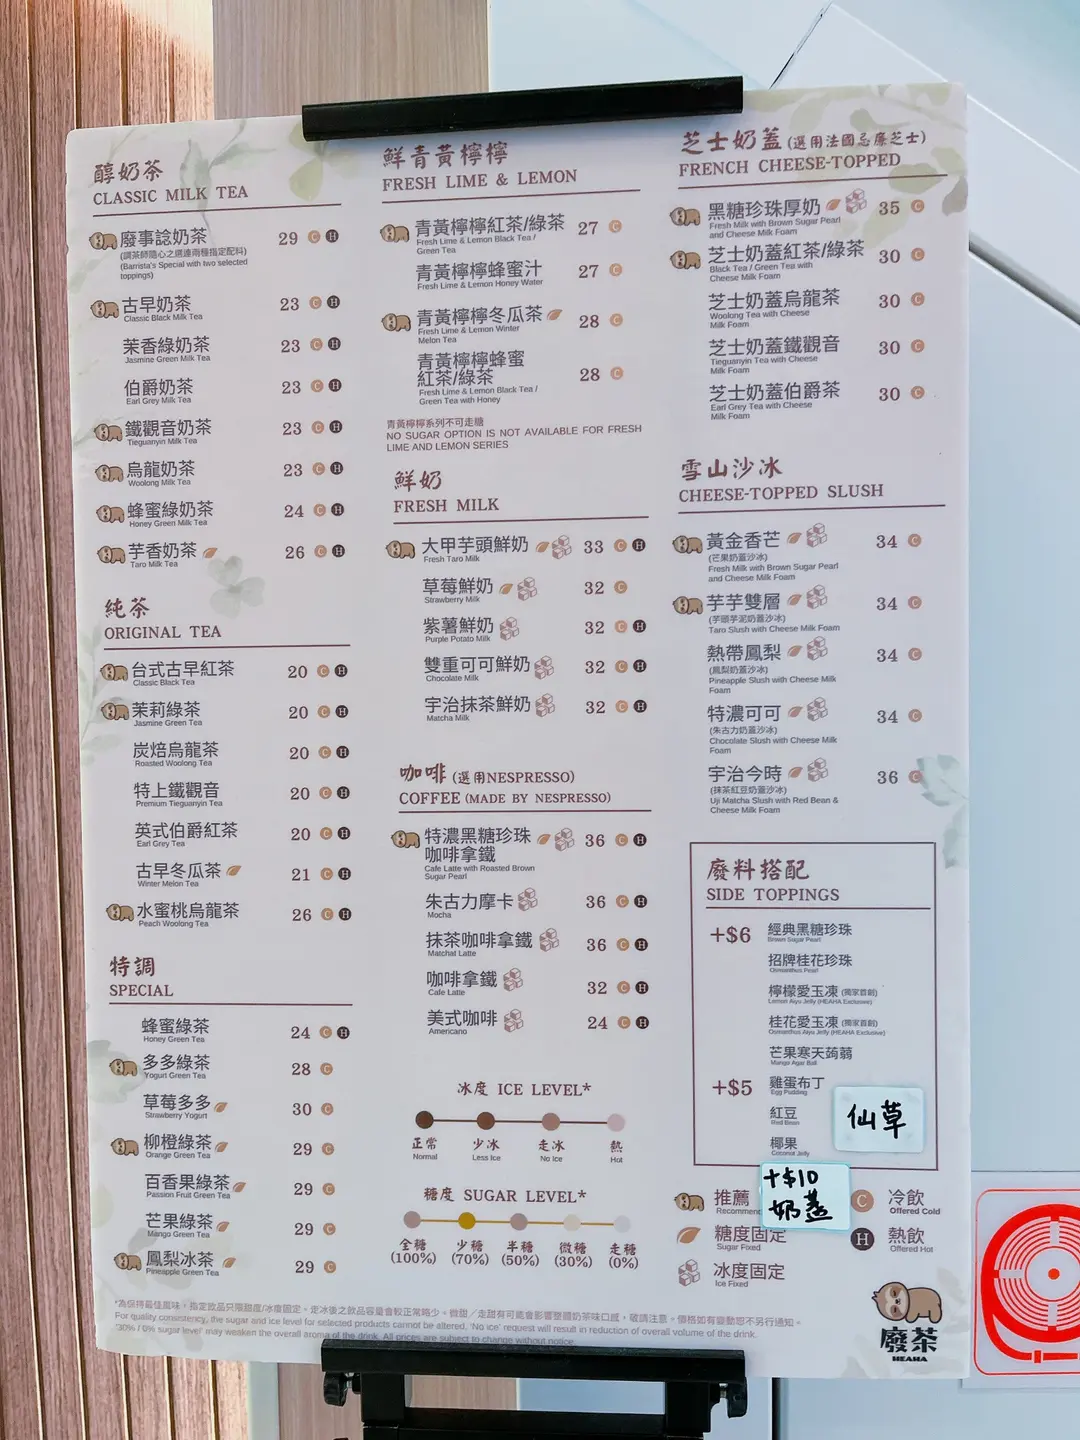 醇奶茶
CLASSIC MILK TEA
廢事諗奶茶 29 C H
(調茶師隨心之選連兩種指定配料)
(Barrista's Special with two selected
toppings)
古早奶茶 23 C H
Classic Black Milk Tea
茉香綠奶茶 23 C H
Jasmine Green Milk Tea
伯爵奶茶 23 C H
Earl Grey Milk Tea
鐵觀音奶茶 23 C H
Tieguanyin Milk Tea
烏龍奶茶 23 C H
Woolong Milk Tea
蜂蜜綠奶茶 24 C H
Honey Green Milk Tea
芋香奶茶 26 C H
Taro Milk Tea
純茶
ORIGINAL TEA
台式古早紅茶 20 C H
Classic Black Tea
茉莉綠茶 20 C H
Jasmine Green Tea
炭焙烏龍茶 20 C H
Roasted Woolong Tea
特上鐵觀音 20 C H
Premium Tieguanyin Tea
英式伯爵紅茶 20 C H
Earl Grey Tea
古早冬瓜茶 21 C H
Winter Melon Tea
水蜜桃烏龍茶 26 C H
Peach Woolong Tea
特調
SPECIAL
蜂蜜綠茶 24 C H
Honey Green Tea
多多綠茶 28 C
Yogurt Green Tea
草莓多多 30 C
Strawberry Yogurt
柳橙綠茶 29 C
Orange Green Tea
百香果綠茶 29 C
Passion Fruit Green Tea
芒果綠茶 29 C
Mango Green Tea
鳳梨冰茶 29 C
Pineapple Green Tea
鮮青黃檸檸
FRESH LIME & LEMON
青黃檸檸紅茶/綠茶 27 C
Fresh Lime & Lemon Black Tea /
Green Tea
青黃檸檸蜂蜜汁 27 C
Fresh Lime & Lemon Honey Water
青黃檸檸冬瓜茶 28 C
Fresh Lime & Lemon Winter
Melon Tea
青黃檸檸蜂蜜
紅茶/綠茶 28 C
Fresh Lime & Lemon Black Tea /
Green Tea with Honey
青黃檸檸系列不可走糖
NO SUGAR OPTION IS NOT AVAILABLE FOR FRESH
LIME AND LEMON SERIES
鮮奶
FRESH MILK
大甲芋頭鮮奶 33 C H
Fresh Taro Milk
草莓鮮奶 32 C
Strawberry Milk
紫薯鮮奶 32 C H
Purple Potato Milk
雙重可可鮮奶 32 C H
Chocolate Milk
宇治抹茶鮮奶 32 C H
Matcha Milk
咖啡 (選用NESPRESSO)
COFFEE (MADE BY NESPRESSO)
特濃黑糖珍珠
咖啡拿鐵 36 C H
Cafe Latte with Roasted Brown
Sugar Pearl
朱古力摩卡 36 C H
Mocha
抹茶咖啡拿鐵 36 C H
Matchat Latte
咖啡拿鐵 32 C H
Cafe Latte
美式咖啡 24 C H
Americano
冰度 ICE LEVEL*
正常 少冰 走冰 熱
Normal Less Ice No Ice Hot
糖度 SUGAR LEVEL*
全糖 少糖 半糖 微糖 走糖
(100%) (70%) (50%) (30%) (0%)
芝士奶蓋 (選用法國忌廉芝士)
FRENCH CHEESE-TOPPED
黑糖珍珠厚奶 35 C
Fresh Milk with Brown Sugar Pearl
and Cheese Milk Foam
芝士奶蓋紅茶/綠茶 30 C
Black Tea / Green Tea with
Cheese Milk Foam
芝士奶蓋烏龍茶 30 C
Woolong Tea with Cheese
Milk Foam
芝士奶蓋鐵觀音 30 C
Tieguanyin Tea with Cheese
Milk Foam
芝士奶蓋伯爵茶 30 C
Earl Grey Tea with Cheese
Milk Foam
雪山沙冰
CHEESE-TOPPED SLUSH
黃金香芒 34 C
(芒果奶蓋沙冰)
Fresh Milk with Brown Sugar Pearl
and Cheese Milk Foam
芋芋雙層 34 C
(芋頭芋泥奶蓋沙冰)
Taro Slush with Cheese Milk Foam
熱帶鳳梨 34 C
(鳳梨奶蓋沙冰)
Pineapple Slush with Cheese Milk
Foam
特濃可可 34 C
(朱古力奶蓋沙冰)
Chocolate Slush with Cheese Milk
Foam
宇治今時 36 C
(抹茶紅豆奶蓋沙冰)
Uji Matcha Slush with Red Bean &
Cheese Milk Foam
廢料搭配
SIDE TOPPINGS
+$6 經典黑糖珍珠
Brown Sugar Pearl
招牌桂花珍珠
Osmanthus Pearl
檸檬愛玉凍 (獨家首創)
Lemon Aiyu Jelly (HEAHA Exclusive)
桂花愛玉凍 (獨家首創)
Osmanthus Aiyu Jelly (HEAHA Exclusive)
芒果寒天蒟蒻
Mango Agar Ball
+$5 雞蛋布丁
Egg Pudding
紅豆
Red Bean
椰果
Coconut Jelly
仙草
+$10
奶蓋
推薦
Recommen
糖度固定
Sugar Fixed
冰度固定
Ice Fixed
C 冷飲
Offered Cold
H 熱飲
Offered Hot
廢茶
HEAHA
*為保持最佳風味，指定飲品只限甜度/冰度固定。走冰後之飲品容量會較正常略少。微甜／走甜有可能會影響整體奶茶味口感，敬請注意。價格如有變動恕不另行通知。
For quality consistency, the sugar and ice level for selected products cannot be altered. 'No ice' request will result in reduction of overall volume of the drink.
'30% / 0% sugar level' may weaken the overall aroma of the drink. All prices are subject to change without notice.